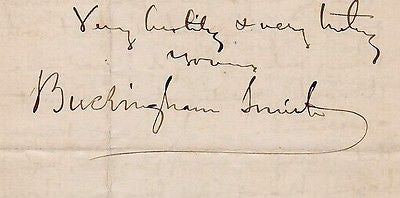 Very hastily & very truly
Yours
Buckingham Smith